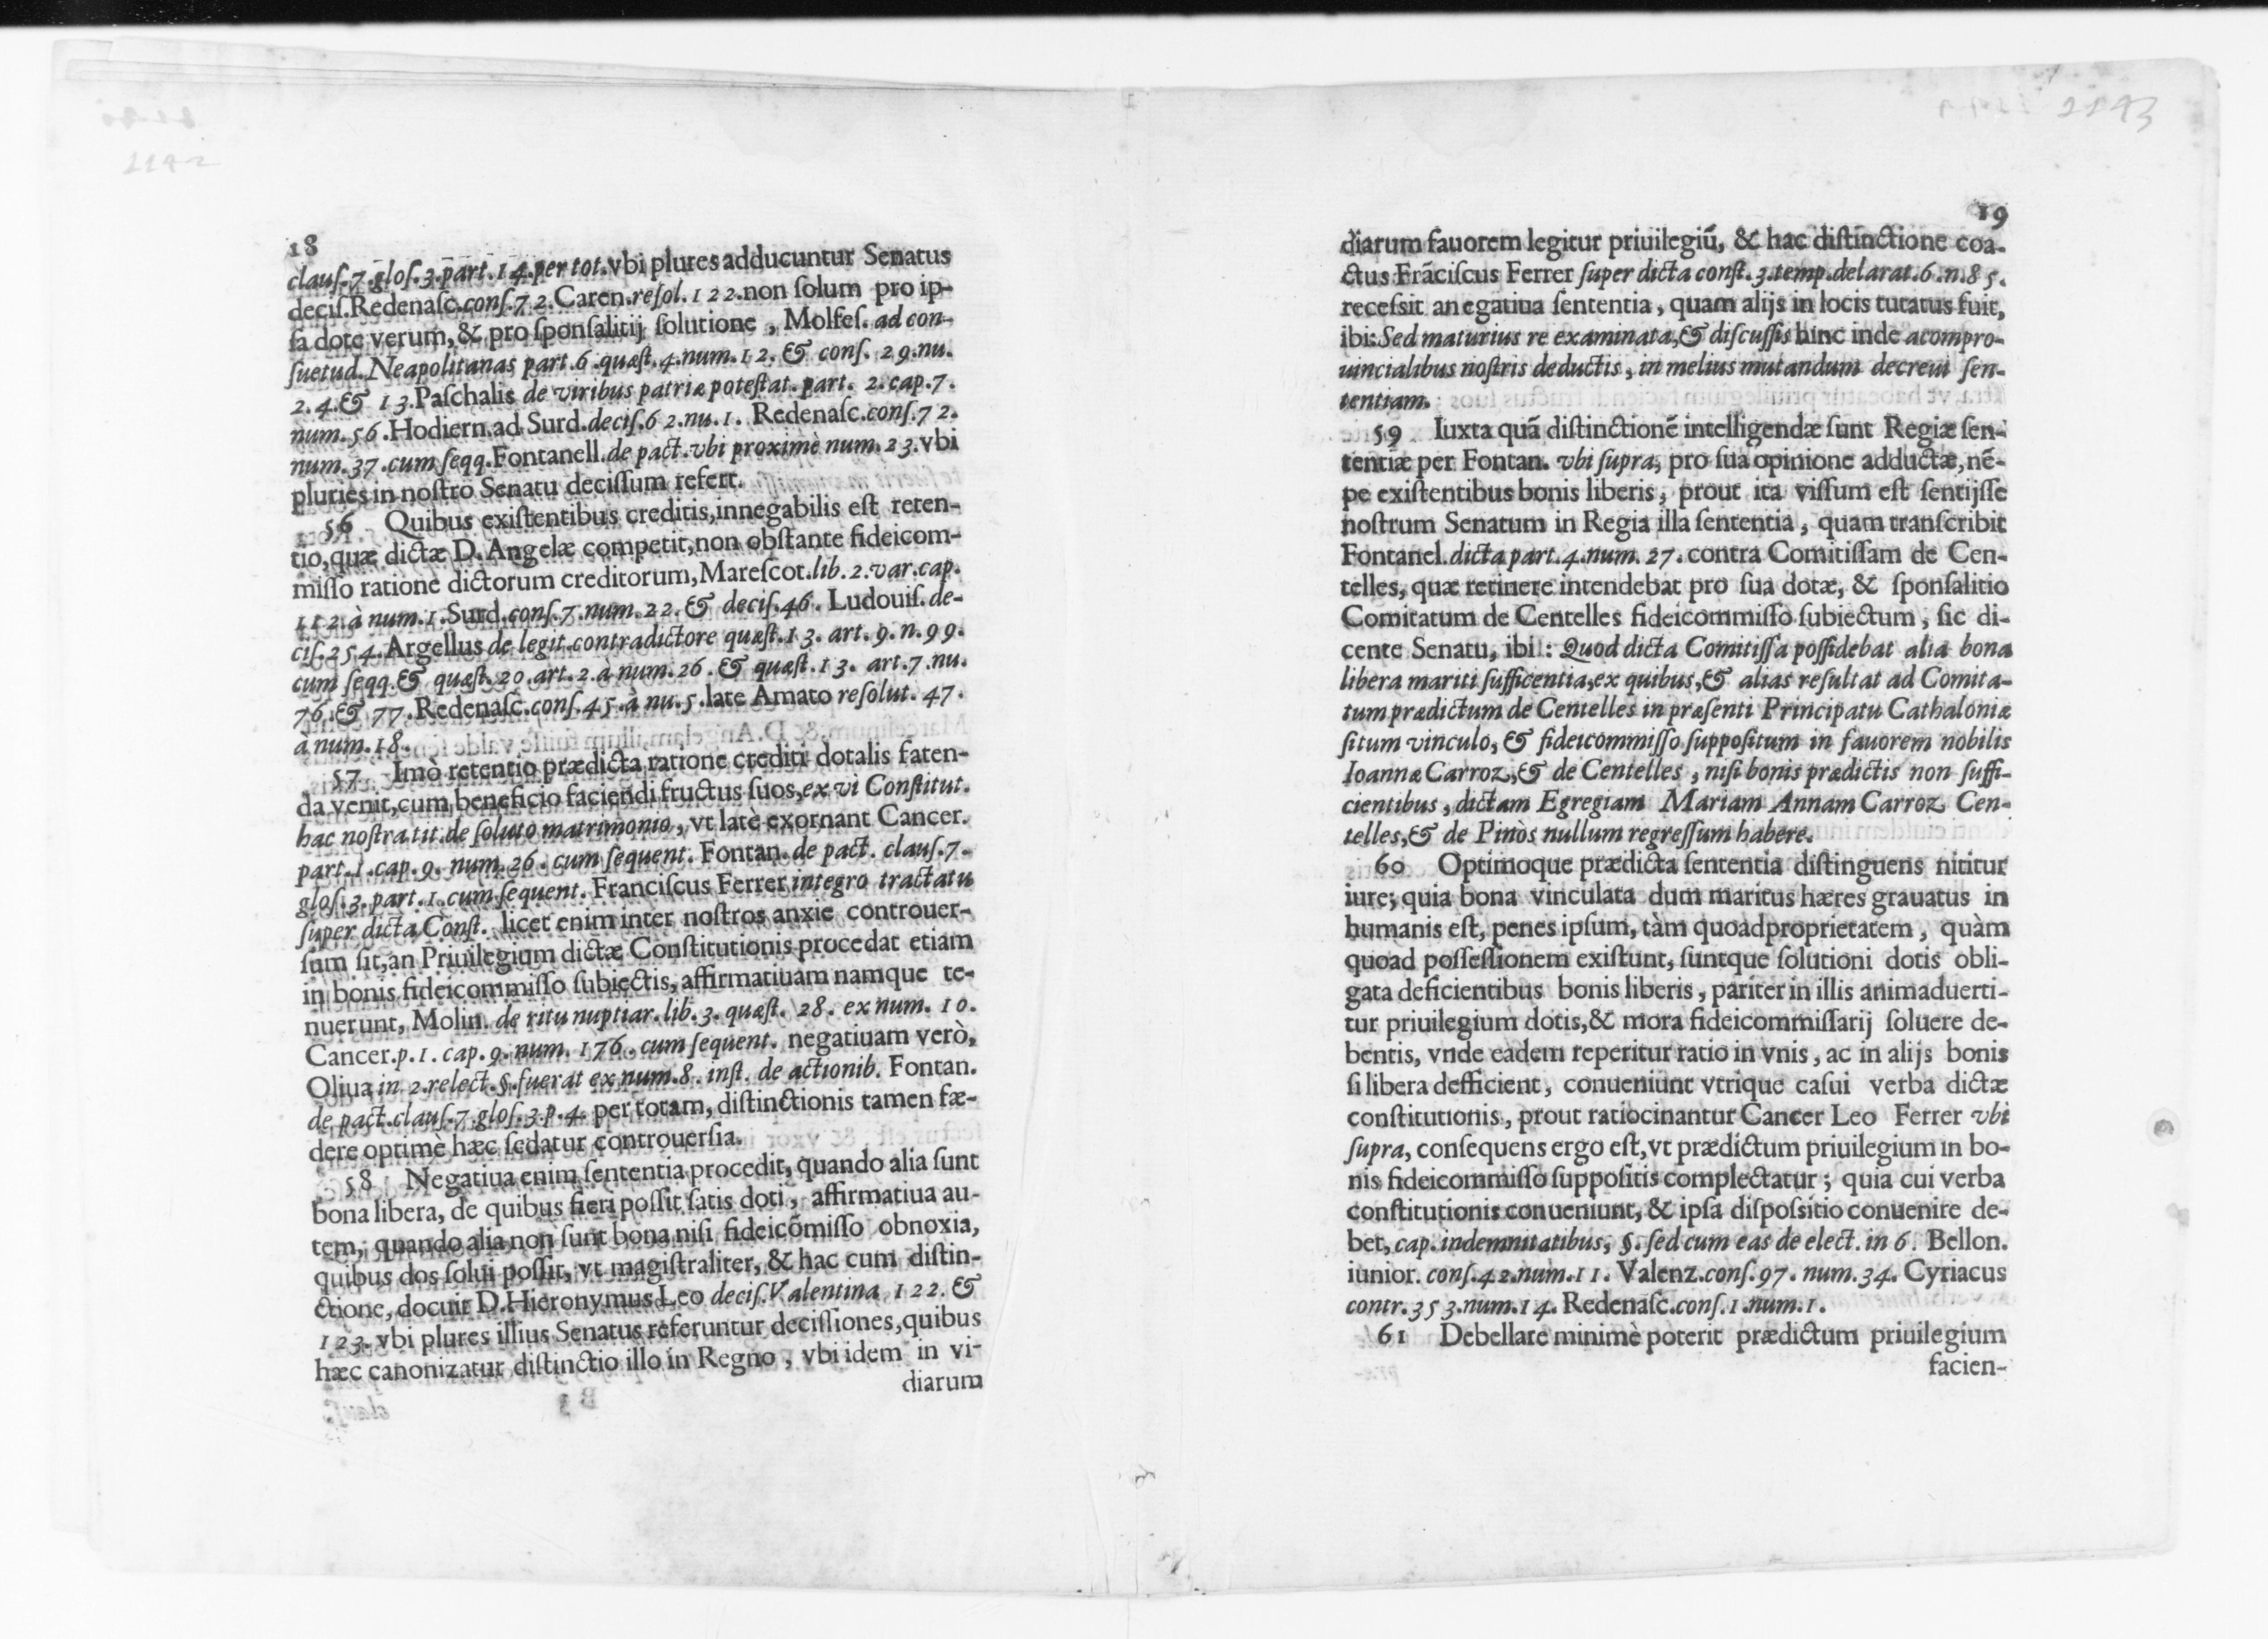 2192
18
clauſ.7.gloſ.3.part.14.per tot.vbi plures adducuntur Senatus
deciſ.Redenaſc.conſ.72.Caren.reſol.122.non ſolum pro ip-
ſa dote verum, & pro ſponſalitij ſolutione, Molfeſ. ad con-
ſuetud. Neapolitanas part.6.quæſt.4.num.12. & conſ. 29.nu.
2.4.& 13.Paſchalis de viribus patriæ poteſtat. part. 2.cap.7.
num.56.Hodiern.ad Surd.deciſ.62.nu.1. Redenaſc.conſ.72.
num.37.cum ſeqq.Fontanell.de pact.vbi proximè num.23.vbi
pluries in noſtro Senatu deciſſum refert.
56 Quibus exiſtentibus creditis,innegabilis eſt reten-
tio,quæ dictæ D.Angelæ competit,non obſtante fideicom-
miſſo ratione dictorum creditorum,Mareſcot.lib.2.var.cap.
112.à num.1.Surd.conſ.7.num.22.& deciſ.46. Ludouiſ.de-
ciſ.254.Argellus de legit.contradictore quæſt.13. art.9.n.99.
cum ſeqq.& quæſt.20.art.2.à num.26.& quæſt.13. art.7.nu.
76.& 77.Redenaſc.conſ.45.à nu.5.late Amato reſolut. 47.
à num.18.
57 Imò retentio prædicta ratione crediti dotalis faten-
da venit,cum beneficio faciendi fructus ſuos,ex vi Conſtitut.
hac noſtra tit.de ſoluto matrimonio, vt latè exornant Cancer.
part.1.cap.9. num.26.cum ſequent. Fontan.de pact. clauſ.7.
gloſ.3.part.1.cum ſequent. Franciſcus Ferrer integro tractatu
ſuper dicta Conſt. licet enim inter noſtros anxie controuer-
ſum ſit,an Priuilegium dictæ Conſtitutionis procedat etiam
in bonis fideicommiſſo ſubiectis, affirmatiuam namque te-
nuerunt, Molin. de ritu nuptiar.lib.3.quæſt. 28. ex num. 10.
Cancer.p.1. cap.9.num. 176.cum ſequent. negatiuam verò,
Oliua in 2.relect.§.fuerat ex num.8. inſt. de actionib. Fontan.
de pact.clauſ.7.gloſ.3.p.4. per totam, diſtinctionis tamen fæ-
dere optimè hæc ſedatur controuerſia.
58 Negatiua enim ſententia procedit, quando alia ſunt
bona libera, de quibus fieri poſſit ſatis doti, affirmatiua au-
tem, quando alia non ſunt bona niſi fideicõmiſſo obnoxia,
quibus dos ſolui poſſit, vt magiſtraliter, & hac cum diſtin-
ctione, docuit D.Hieronymus Leo deciſ.Valentina 122. &
123. vbi plures illius Senatus referuntur deciſſiones,quibus
hæc canonizatur diſtinctio illo in Regno, vbi idem in vi-
diarum
2193
19
diarum fauorem legitur priuilegiũ, & hac diſtinctione coa-
ctus Frãciſcus Ferrer ſuper dicta conſt.3.temp.delarat.6.n.85.
receſsit an egatiua ſententia, quam alijs in locis tutatus fuit,
ibi:Sed maturius re examinata,& diſcuſſis hinc inde acompro-
uincialibus noſtris deductis, in melius mutandum decreui ſen-
tentiam.
59 Iuxta quã diſtinctionẽ intelligendæ ſunt Regiæ ſen-
tentiæ per Fontan. vbi ſupra, pro ſua opinione adductæ,nẽ-
pe exiſtentibus bonis liberis, prout ita viſſum eſt ſentijſſe
noſtrum Senatum in Regia illa ſententia, quam tranſcribit
Fontanel.dicta part.4.num.27.contra Comitiſſam de Cen-
telles, quæ retinere intendebat pro ſua dotæ, & ſponſalitio
Comitatum de Centelles fideicommiſſo ſubiectum, ſic di-
cente Senatu, ibi: Quod dicta Comitiſſa poſſidebat alia bona
libera mariti ſufficentia,ex quibus,& alias reſultat ad Comita-
tum prædictum de Centelles in præſenti Principatu Cathaloniæ
ſitum vinculo, & fideicommiſſo ſuppoſitum in fauorem nobilis
Ioannæ Carroz,& de Centelles, niſi bonis prædictis non ſuffi-
cientibus, dictam Egregiam Mariam Annam Carroz Cen-
telles,& de Pinòs nullum regreſſum habere.
60 Optimoque prædicta ſententia diſtinguens nititur
iure; quia bona vinculata dum maritus hæres grauatus in
humanis eſt, penes ipſum, tàm quoad proprietatem, quàm
quoad poſſeſſionem exiſtunt, ſuntque ſolutioni dotis obli-
gata deficientibus bonis liberis, pariter in illis animaduerti-
tur priuilegium dotis,& mora fideicommiſſarij ſoluere de-
bentis, vnde eadem reperitur ratio in vnis, ac in alijs bonis
ſi libera defficient, conueniunt vtrique caſui verba dictæ
conſtitutionis, prout ratiocinantur Cancer Leo Ferrer vbi
ſupra, conſequens ergo eſt,vt prædictum priuilegium in bo-
nis fideicommiſſo ſuppoſitis complectatur; quia cui verba
conſtitutionis conueniunt, & ipſa diſpoſsitio conuenire de-
bet, cap.indemnitatibus, §. ſed cum eas de elect. in 6. Bellon.
iunior. conſ.42.num.11. Valenz.conſ.97. num.34. Cyriacus
contr.353.num.14. Redenaſc.conſ.1.num.1.
61 Debellare minimè poterit prædictum priuilegium
facien-